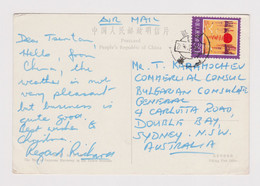 AIR MAIL
中国人民邮政明信片
Postcard
People's Republic of China
Dear
Hello, from
China, the
weather is not
very pleasant
but business is
quite good.
Best wishes to
Regards
MR. T. KARAMOCHEV
COMMERCIAL CONSUL
BULGARIAN CONSULATE
GENERAL
4 CARLOTTA ROAD,
DOUBLE BAY,
SYDNEY. N.S.W.
AUSTRALIA